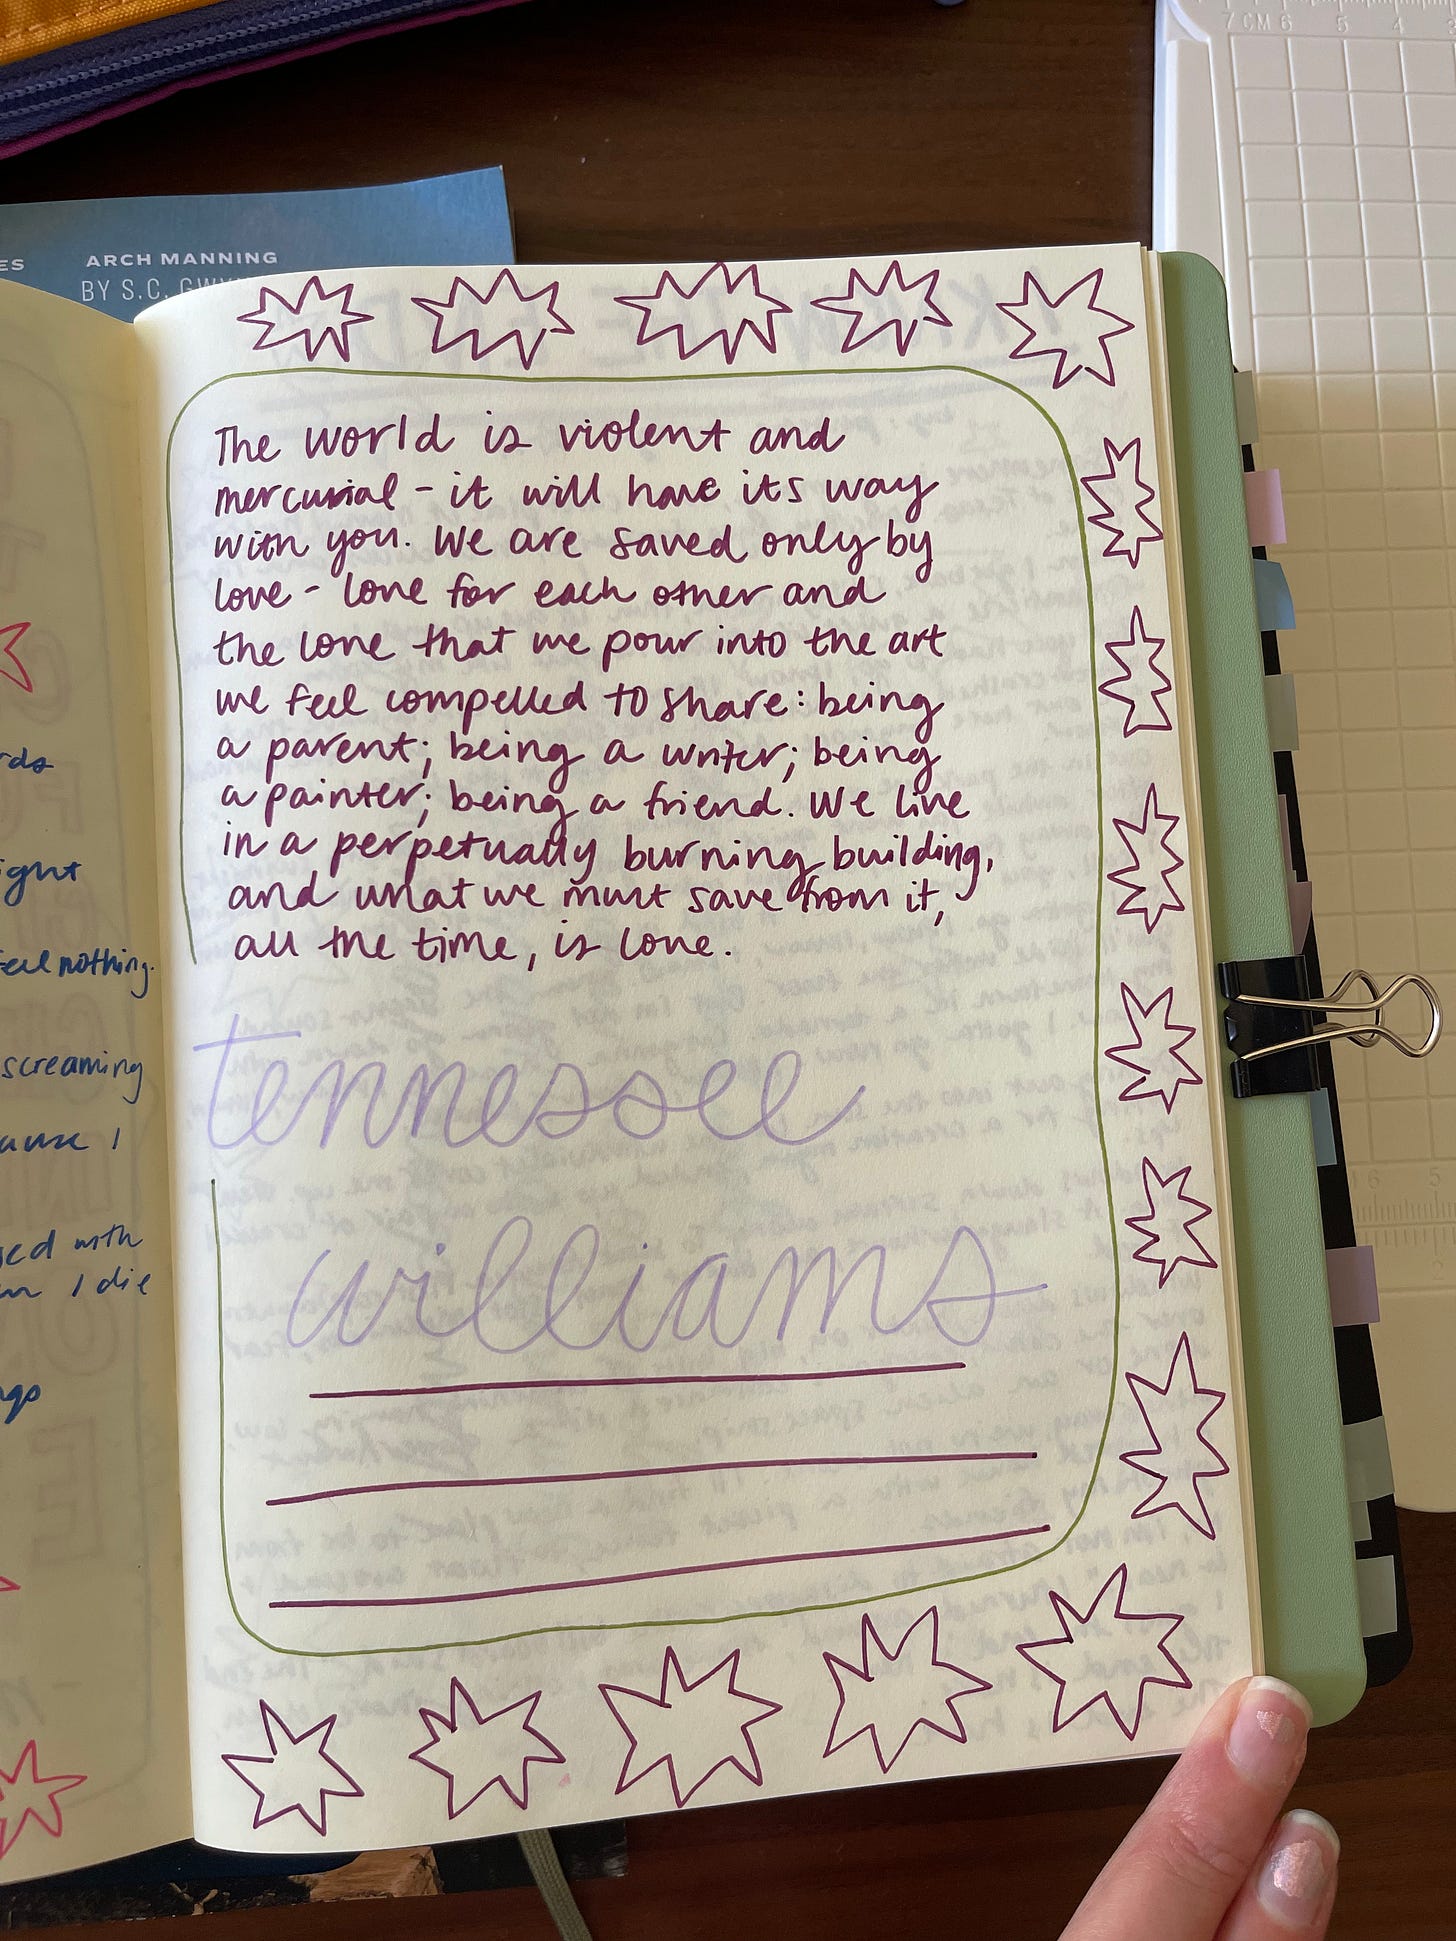 ES
ARCH MANNING
BY S.C. GWYN
7 CM 6 5 4
The world is violent and
mercurial - it will have its way
with you. We are saved only by
love - love for each other and
the love that we pour into the art
we feel compelled to share: being
a parent; being a writer; being
a painter; being a friend. We live
in a perpetually burning building,
and what we must save from it,
all the time, is love.
tennessee
williams
rds
ight
feel nothing.
screaming
ause I
ged with
I die
ngs
6 5